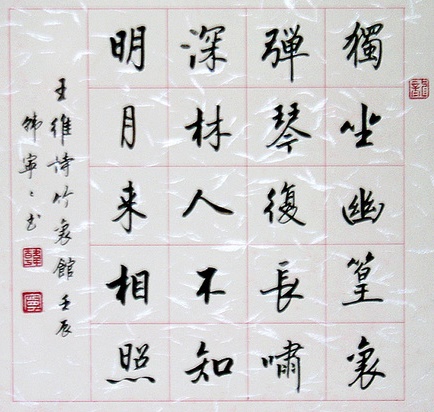 獨坐幽篁裏
彈琴復長嘯
深林人不知
明月来相照
王維詩竹裏館壬辰
韩寧〻书